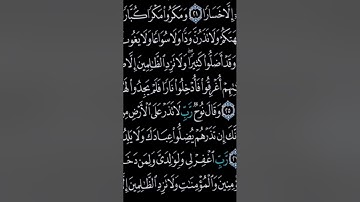 إِلَّا خَسَارًا ۝٢١ وَمَكَرُوا۟ مَكْرًا كُبَّارً
هَتَكُمْ وَلَا تَذَرُنَّ وَدًّا وَلَا سُوَاعًا وَلَا يَغُوثَ
وَقَدْ أَضَلُّوا۟ كَثِيرًا ۖ وَلَا تَزِدِ ٱلظَّٰلِمِينَ إِلَّا
تِهِمْ أُغْرِقُوا۟ فَأُدْخِلُوا۟ نَارًا فَلَمْ يَجِدُوا۟ لَهُ
۝٢٥ وَقَالَ نُوحٌ رَّبِّ لَا تَذَرْ عَلَى ٱلْأَرْضِ مِنَ
نَّكَ إِن تَذَرْهُمْ يُضِلُّوا۟ عِبَادَكَ وَلَا يَلِدُ
رَّبِّ ٱغْفِرْ لِى وَلِوَٰلِدَىَّ وَلِمَن دَخَلَ
مِنِينَ وَٱلْمُؤْمِنَٰتِ وَلَا تَزِدِ ٱلظَّٰلِمِينَ إِلَّا